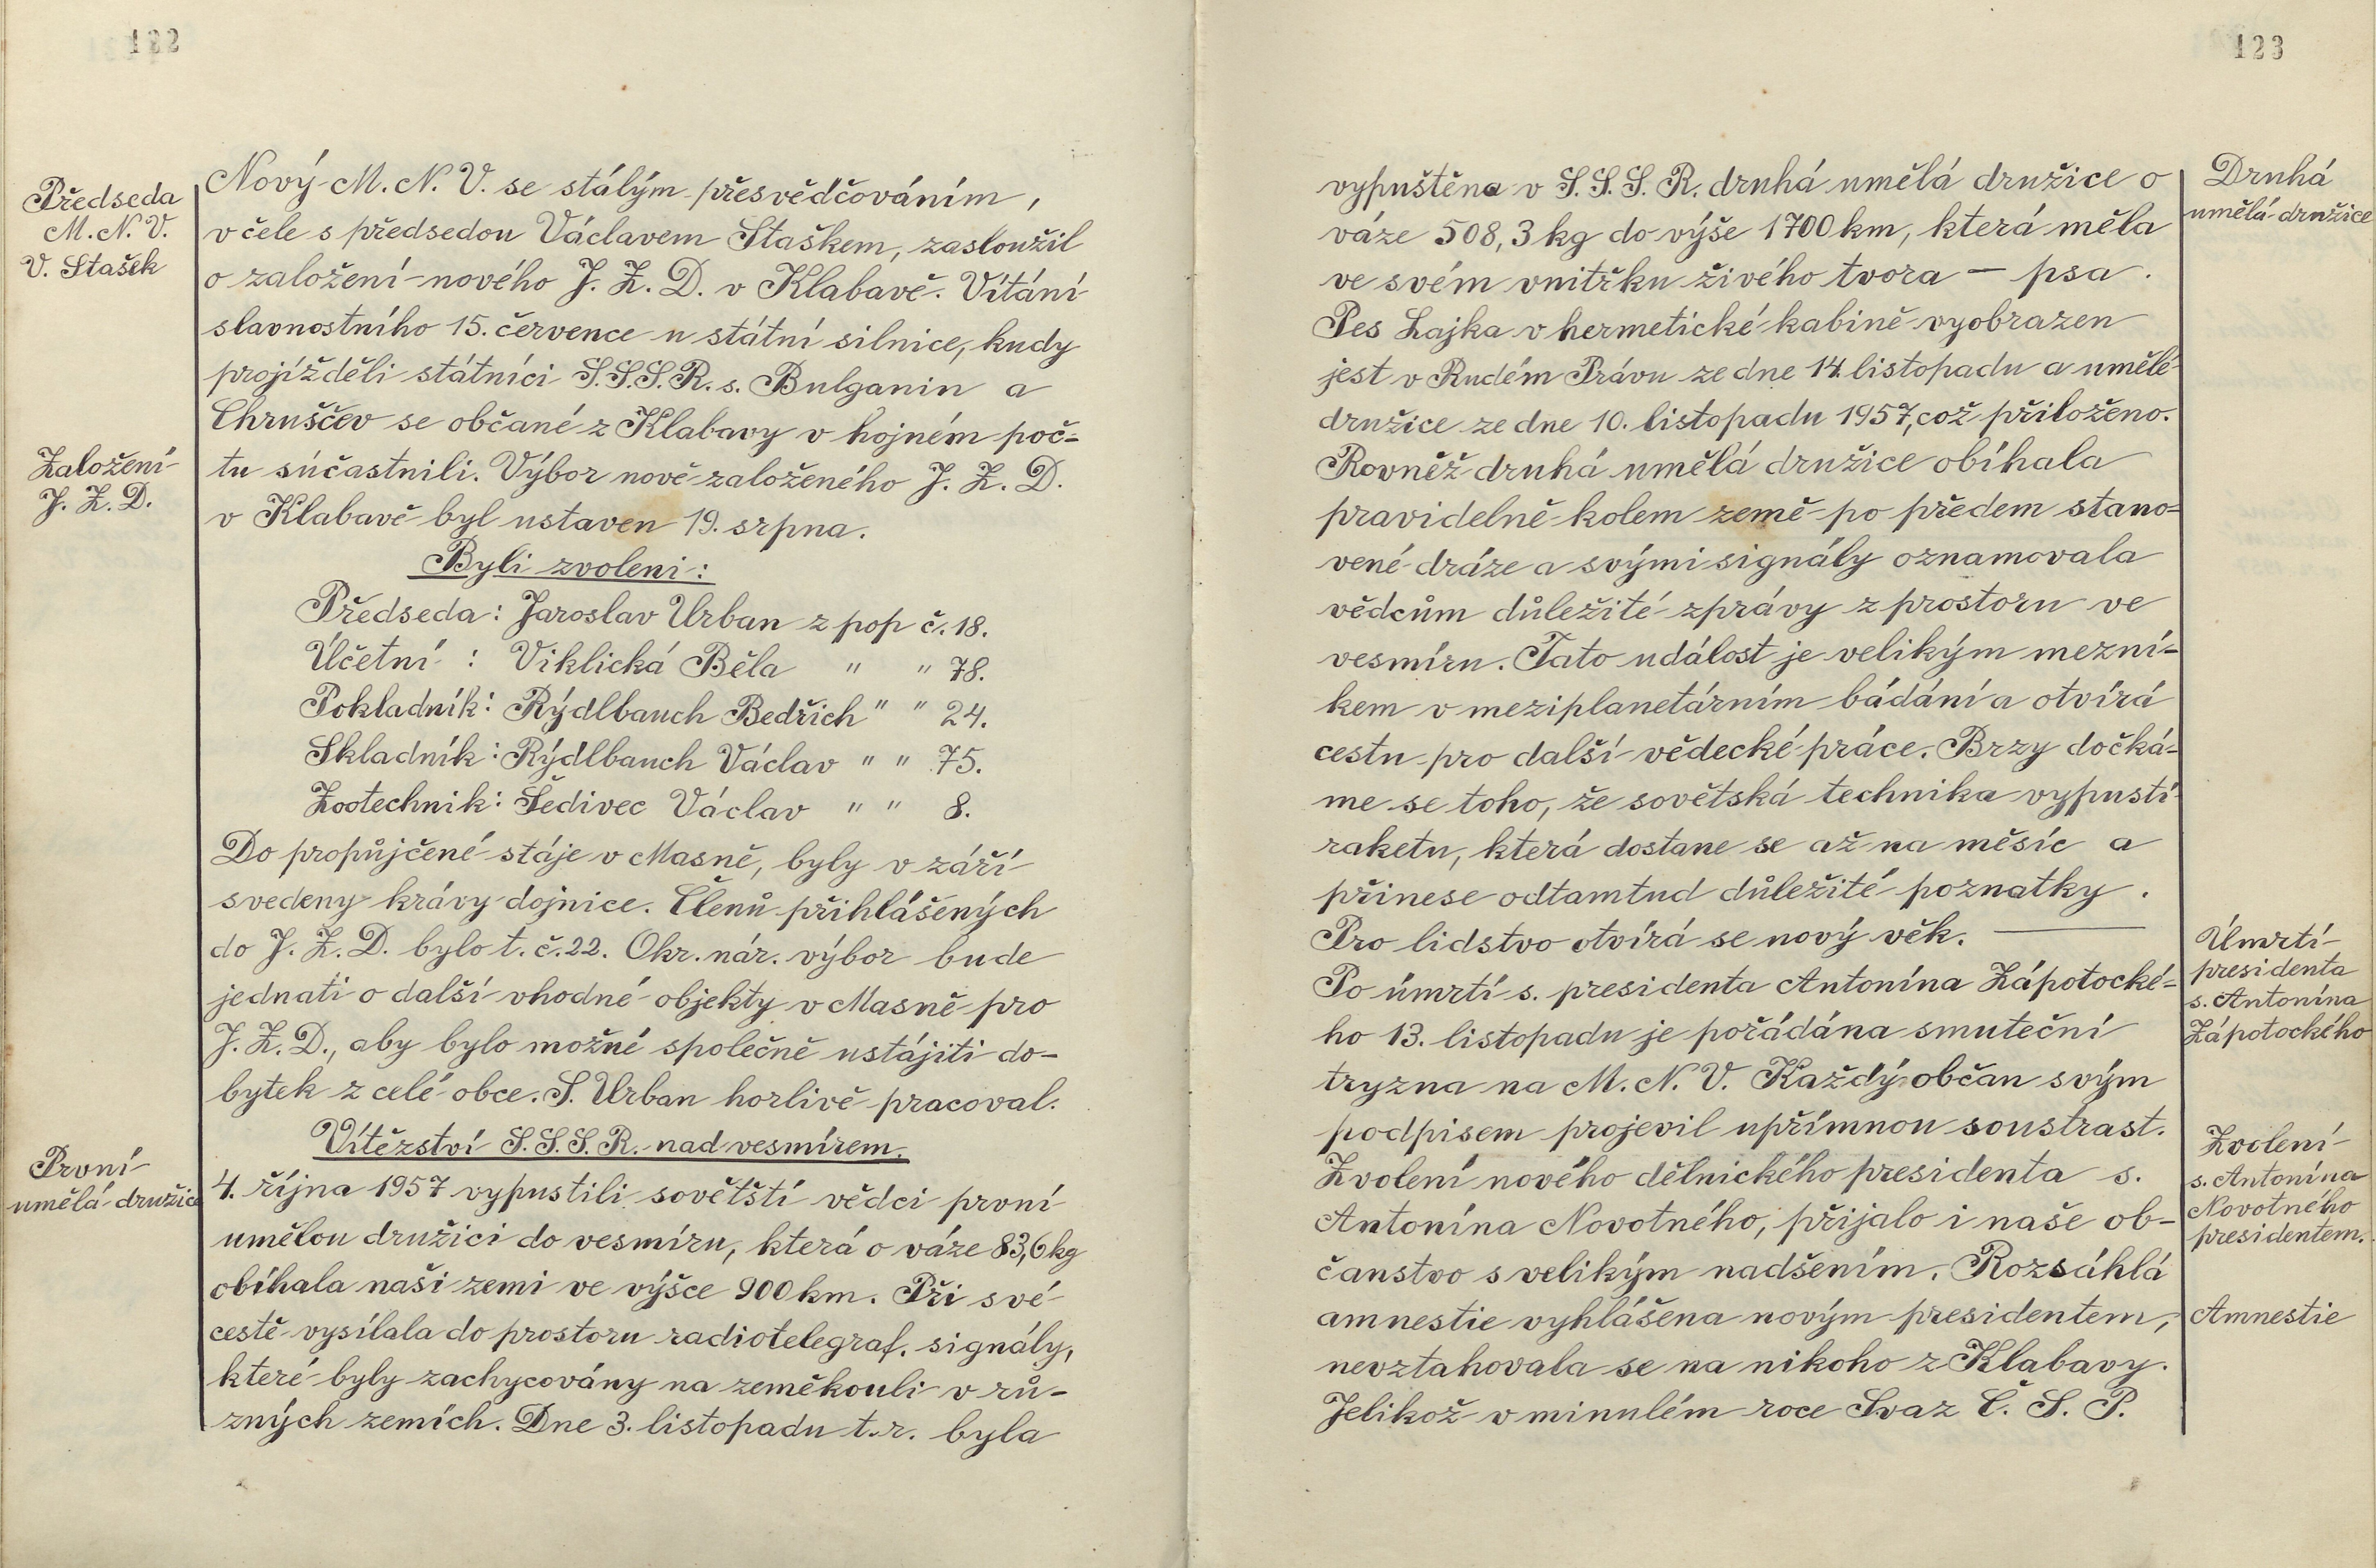 122
Předseda
M. N. V.
V. Stašek
Nový M. N. V. se stálým přesvědčováním,
v čele s předsedou Václavem Staškem, zasloužil
o založení nového J. Z. D. v Klabavě. Vítání
slavnostního 15. července u státní silnice, kudy
projížděli státníci S.S.S.R. s. Bulganin a
Chruščev se občané z Klabavy v hojném poč=
Založení
J. Z. D.
tu súčastnili. Výbor nově založeného J. Z. D.
v Klabavě byl ustaven 19. srpna.
Byli zvoleni:
Předseda: Jaroslav Urban z pop č. 18.
Účetní : Viklická Běla " " 78.
Pokladník: Rýdlbauch Bedřich " " 24.
Skladník: Rýdlbauch Václav " " 75.
Zootechnik: Šedivec Václav " " 8.
Do propůjčené stáje v Masně, byly v září
svedeny krávy dojnice. Členů přihlášených
do J. Z. D. bylo t. č. 22. Okr. nár. výbor bude
jednati o další vhodné objekty v Masně pro
J. Z. D., aby bylo možné společně ustájiti do-
bytek z celé obce. S. Urban horlivě pracoval.
Vítězství S.S.S.R. nad vesmírem.
První
umělá družice
4. října 1957 vypustili sovětští vědci první
umělou družici do vesmíru, která o váze 83,6 kg
obíhala naši zemi ve výšce 900 km. Při své
cestě vysílala do prostoru radiotelegraf. signály,
které byly zachycovány na zeměkouli v rů-
zných zemích. Dne 3. listopadu t. r. byla
123
Druhá
umělá družice
vypuštěna v S.S.S.R. druhá umělá družice o
váze 508,3 kg do výše 1700 km, která měla
ve svém vnitřku živého tvora – psa.
Pes Lajka v hermetické kabině vyobrazen
jest v Rudém Právu ze dne 14. listopadu a umělé
družice ze dne 10. listopadu 1957, což přiloženo.
Rovněž druhá umělá družice obíhala
pravidelně kolem země po předem stano=
vené dráze a svými signály oznamovala
vědcům důležité zprávy z prostoru ve
vesmíru. Tato událost je velikým mezní-
kem v meziplanetárním bádání a otvírá
cestu pro další vědecké práce. Brzy dočká-
me se toho, že sovětská technika vypustí
raketu, která dostane se až na měsíc a
přinese odtamtud důležité poznatky.
Pro lidstvo otvírá se nový věk. —
Úmrtí
presidenta
s. Antonína
Zápotockého
Po úmrtí s. presidenta Antonína Zápotocké=
ho 13. listopadu je pořádána smuteční
tryzna na M. N. V. Každý občan svým
podpisem projevil upřímnou soustrast.
Zvolení
s. Antonína
Novotného
presidentem.
Zvolení nového dělnického presidenta s.
Antonína Novotného, přijalo i naše ob-
čanstvo s velikým nadšením. Rozsáhlá
Amnestie
amnestie vyhlášena novým presidentem,
nevztahovala se na nikoho z Klabavy.
Jelikož v minulém roce Svaz Č. S. P.